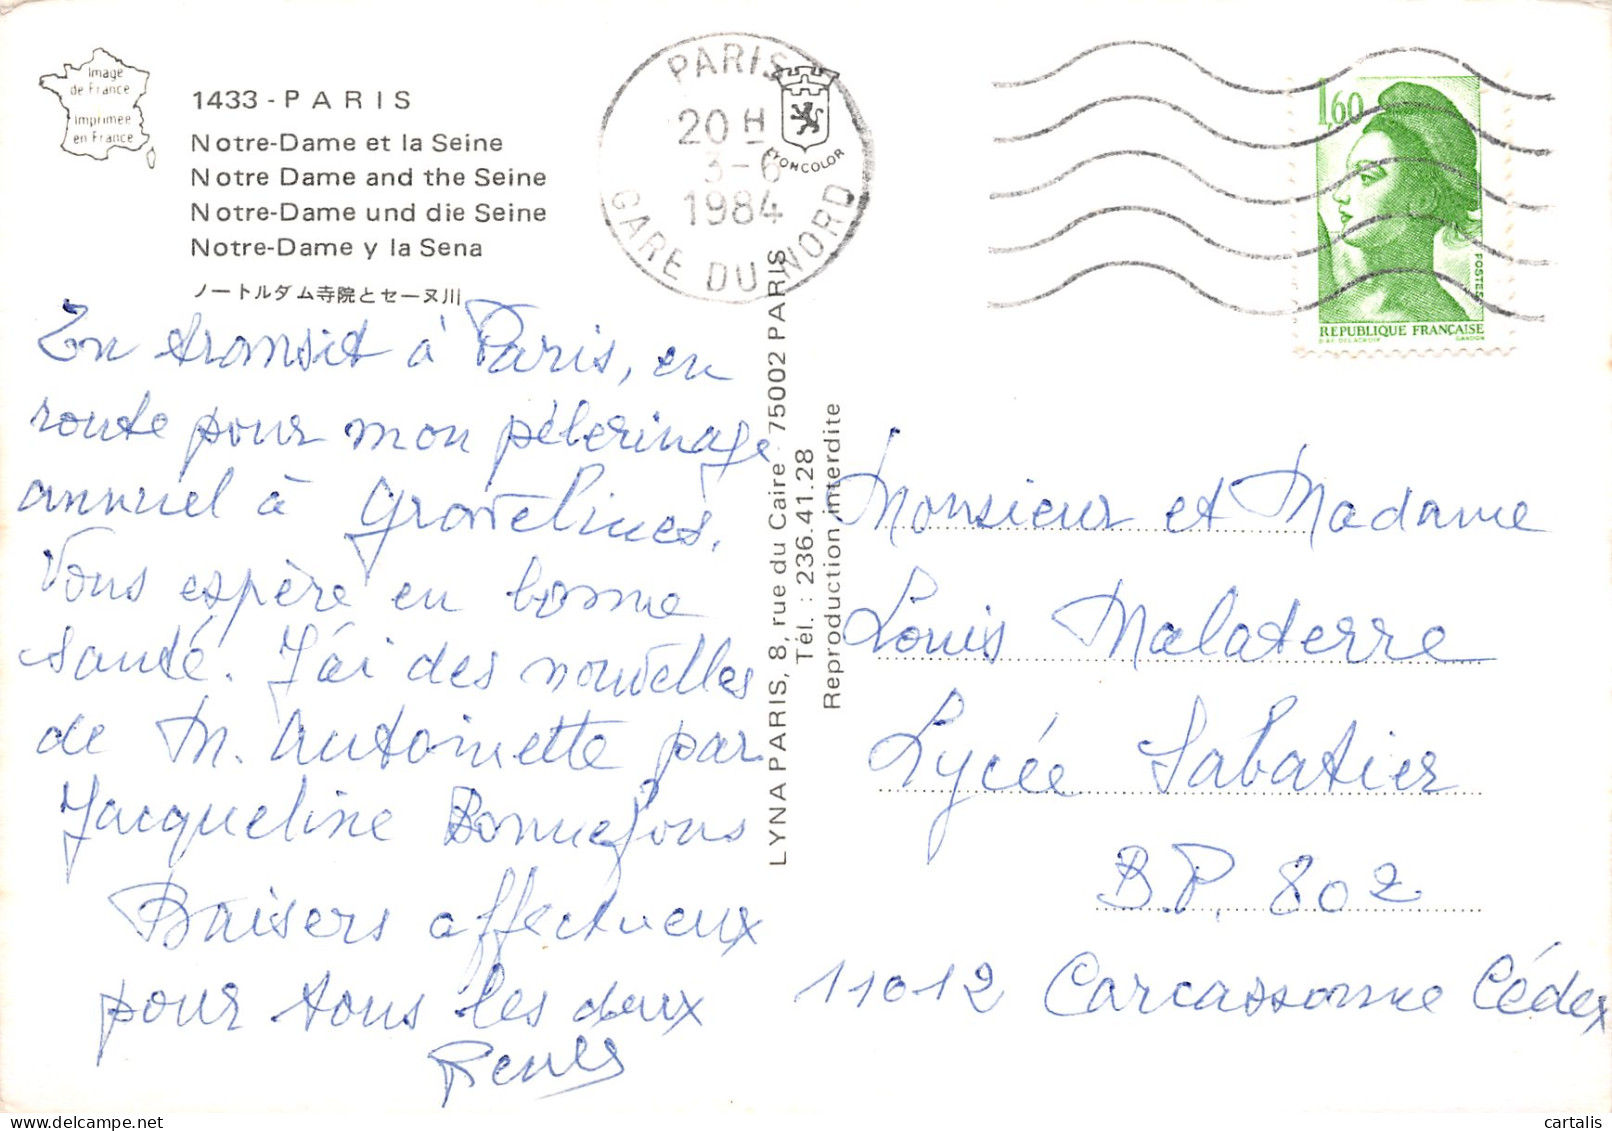 Image
de France
Imprimée
en France
1433 - PARIS
Notre-Dame et la Seine
Notre Dame and the Seine
Notre-Dame und die Seine
Notre-Dame y la Sena
ノートルダム寺院とセーヌ川
PARIS
20 H
3-6
1984
GARE DU NORD
LYONCOLOR
1,60
POSTES
REPUBLIQUE FRANÇAISE
D'AP. DELACROIX GANDON
En transit à Paris, en
route pour mon pélerinage
annuel à Gravelines.
Vous espère en bonne
santé. J'ai des nouvelles
de M. Antoinette par
Jacqueline Bonnefous
Baisers affectueux
pour tous les deux
LYNA PARIS, 8, rue du Caire 75002 PARIS
Tél. : 236.41.28
Reproduction interdite
Monsieur et Madame
Louis Malaterre
Lycée Sabatier
B.P. 802
11012 Carcassonne Cédex
cartalis